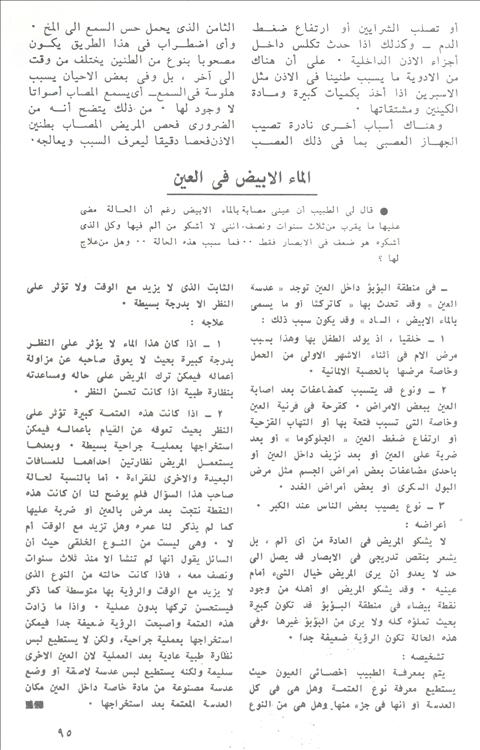 أو تصلب الشرايين أو ارتفاع ضغط
الدم – وكذلك اذا حدث تكلس داخل
أجزاء الاذن الداخلية . على أن هناك
من الادوية ما يسبب طنينا فى الاذن مثل
الاسبرين اذا أخذ بكميات كبيرة ومادة
الكينين ومشتقاتها .
وهناك أسباب أخرى نادرة تصيب
الجهاز العصبى بما فى ذلك العصب
الثامن الذى يحمل حس السمع الى المخ .
وأى اضطراب فى هذا الطريق يكون
مصحوبا بنوع من الطنين يختلف من وقت
الى آخر ، بل وفى بعض الاحيان يسبب
هلوسة فى السمع– أى يسمع المصاب أصواتا
لا وجود لها . من ذلك يتضح أنه من
الضرورى فحص المريض المصاب بطنين
الاذن فحصا دقيقا ليعرف السبب ويعالجه .
الماء الابيض فى العين
● قال لى الطبيب أن عينى مصابة بالماء الابيض رغم أن الحالة مضى
عليها ما يقرب من ثلاث سنوات ونصف. اننى لا أشكو من ألم فيها وكل الذى
أشكوه هو ضعف فى الابصار فقط .. فما سبب هذه الحالة .. وهل من علاج
لها ؟
– فى منطقة البؤبؤ داخل العين توجد « عدسة
العين » وقد تحدث بها « كاتركتا » أو ما يسمى
بالماء الابيض ، الساد » وقد يكون سبب ذلك :
١ – خلقيا ، اذ يولد الطفل بها وهذا بسبب
مرض الام فى أثناء الاشهر الاولى من الحمل
وخاصة مرضها بالحصبة الالمانية .
٢ – ونوع قد يتسبب كمضاعفات بعد اصابة
العين ببعض الامراض . كقرحة فى قرنية العين
وخاصة التى تسبب فتحة بها أو التهاب القزحية
أو ارتفاع ضغط العين « الجلوكوما » أو بعد
ضربة على العين أو بعد نزيف داخل العين أو
باحدى مضاعفات بعض أمراض الجسم مثل مرض
البول السكرى أو بعض أمراض الغدد .
٣ – نوع يصيب بعض الناس عند الكبر .
أعراضه :
لا يشكو المريض فى العادة من أى ألم ، بل
يشعر بنقص تدريجى فى الابصار قد يصل الى
حد لا يعدو أن يرى المريض خيال الشىء أمام
عينيه . وقد يشكو المريض أو أهله من وجود
نقطة بيضاء فى منطقة البؤبؤ قد تكون كبيرة
بحيث تملؤه كله ولا يرى من البؤبؤ غيرها ، وفى
هذه الحالة تكون الرؤية ضعيفة جدا .
تشخيصه :
يتم بمعرفة الطبيب أخصائى العيون حيث
يستطيع معرفة نوع العتمة وهل هى فى كل
العدسة أو أنها فى جزء منها. وهل هى من النوع
الثابت الذى لا يزيد مع الوقت ولا تؤثر على
النظر الا بدرجة بسيطة .
علاجه :
١ – اذا كان هذا الماء لا يؤثر على النظر
بدرجة كبيرة بحيث لا يعوق صاحبه عن مزاولة
أعماله فيمكن ترك المريض على حاله ومساعدته
بنظارة طبية اذا كانت تحسن النظر .
٢ – اذا كانت هذه العتمة كبيرة تؤثر على
النظر بحيث تعوقه عن القيام بأعماله فيمكن
استخراجها بعملية جراحية بسيطة . وبعدها
يستعمل المريض نظارتين احداهما للمسافات
البعيدة والاخرى للقراءة . أما بالنسبة لحالة
صاحب هذا السؤال فلم يوضح لنا ان كانت هذه
النقطة نتجت بعد مرض بالعين أو ضربة عليها
كما لم يذكر لنا عمره وهل تزيد مع الوقت أم
لا . وهى ليست من النوع الخلقى حيث أن
السائل يقول أنها لم تنشأ الا منذ ثلاث سنوات
ونصف معه ، فاذا كانت حالته من النوع الذى
لا يزيد مع الوقت والرؤية بها متوسطة كما ذكر
فيستحسن تركها بدون عملية . واذا ما زادت
هذه العتمة وأصبحت الرؤية ضعيفة جدا فيمكن
استخراجها بعملية جراحية، ولكن لا يستطيع لبس
نظارة طبية عادية بعد العملية لان العين الاخرى
سليمة ولكنه يستطيع لبس عدسة لاصقة أو وضع
عدسة مصنوعة من مادة خاصة داخل العين مكان
العدسة المعتمة بعد استخراجها .
٩٥